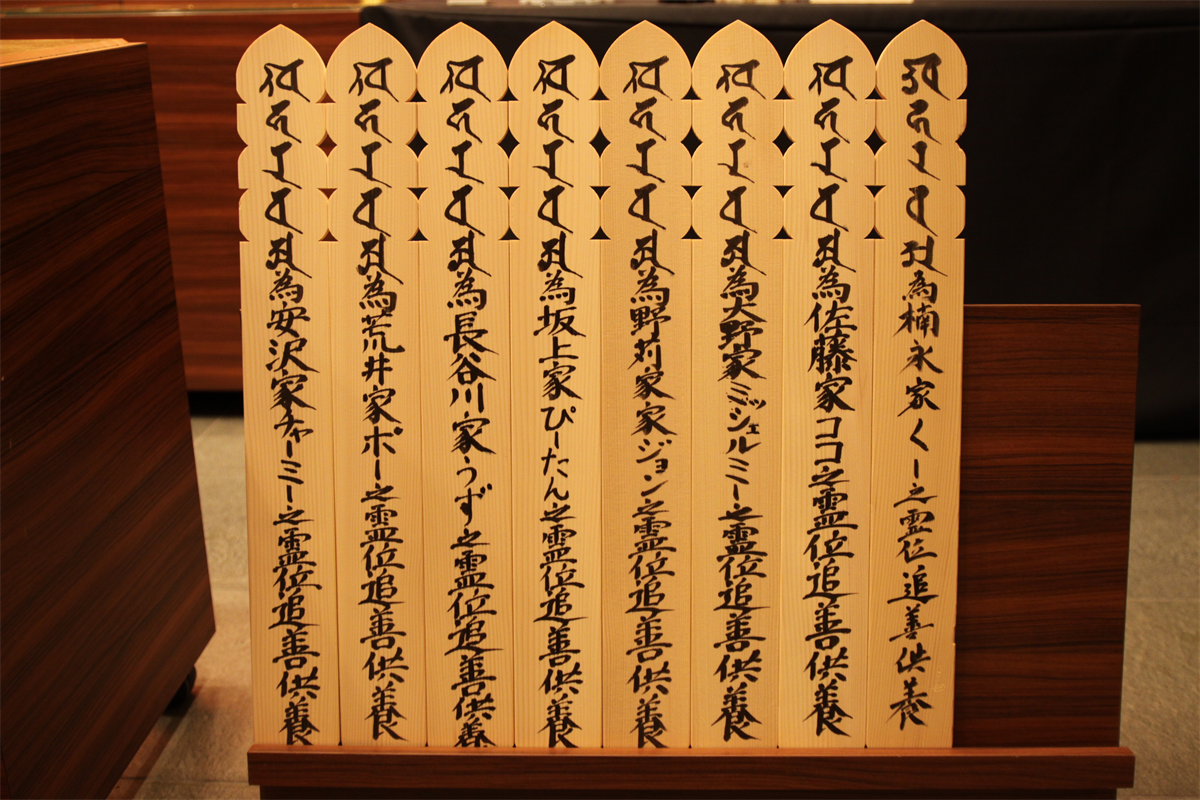 為楠永家くー之霊位追善供養
為佐藤家ココ之霊位追善供養
為大野家ミッシェルミー之霊位追善供養
為野苅家家ジョン之霊位追善供養
為坂上家ぴーたん之霊位追善供養
為長谷川家うず之霊位追善供養
為荒井家ポー之霊位追善供養
為安沢家チャーミー之霊位追善供養